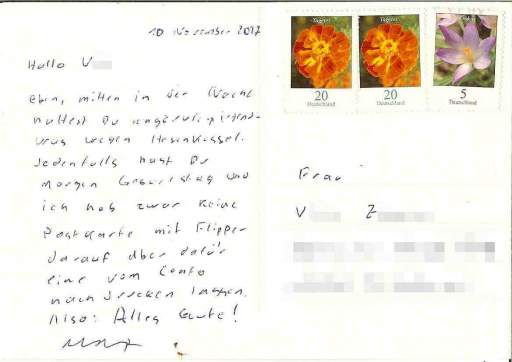 10. November 2017
Hallo V
Eben, mitten in der Nacht
hattest Du
was wegen Hexenkessel.
Jedenfalls hast Du
morgen Geburtstag und
ich hab zwar keine
Postkarte mit Flipper
darauf aber dafür
eine vom Conto
nach drucken lassen.
Also: Alles Gute!
Tagetes
20
Deutschland
Tagetes
20
Deutschland
5
Deutschland
Frau
V Z